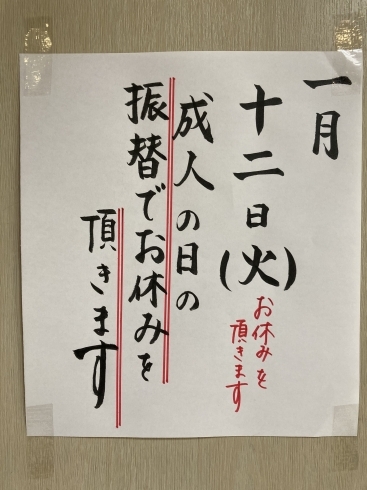 一月
十二日(火)
お休みを
頂きます
成人の日の
振替でお休みを
頂きます